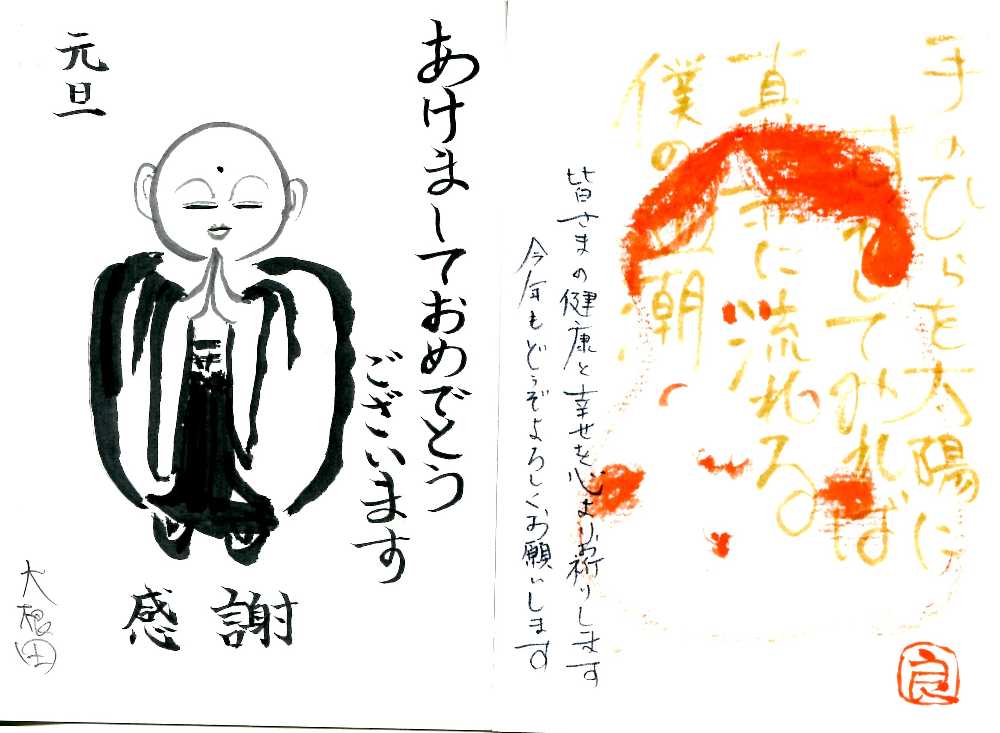 あけましておめでとう
ございます
元旦
感謝
大根田
手のひらを太陽に
すかしてみれば
真っ赤に流れる
僕の血潮
皆さまの健康と幸せを心よりお祈りします
今年もどうぞよろしくお願いします
良